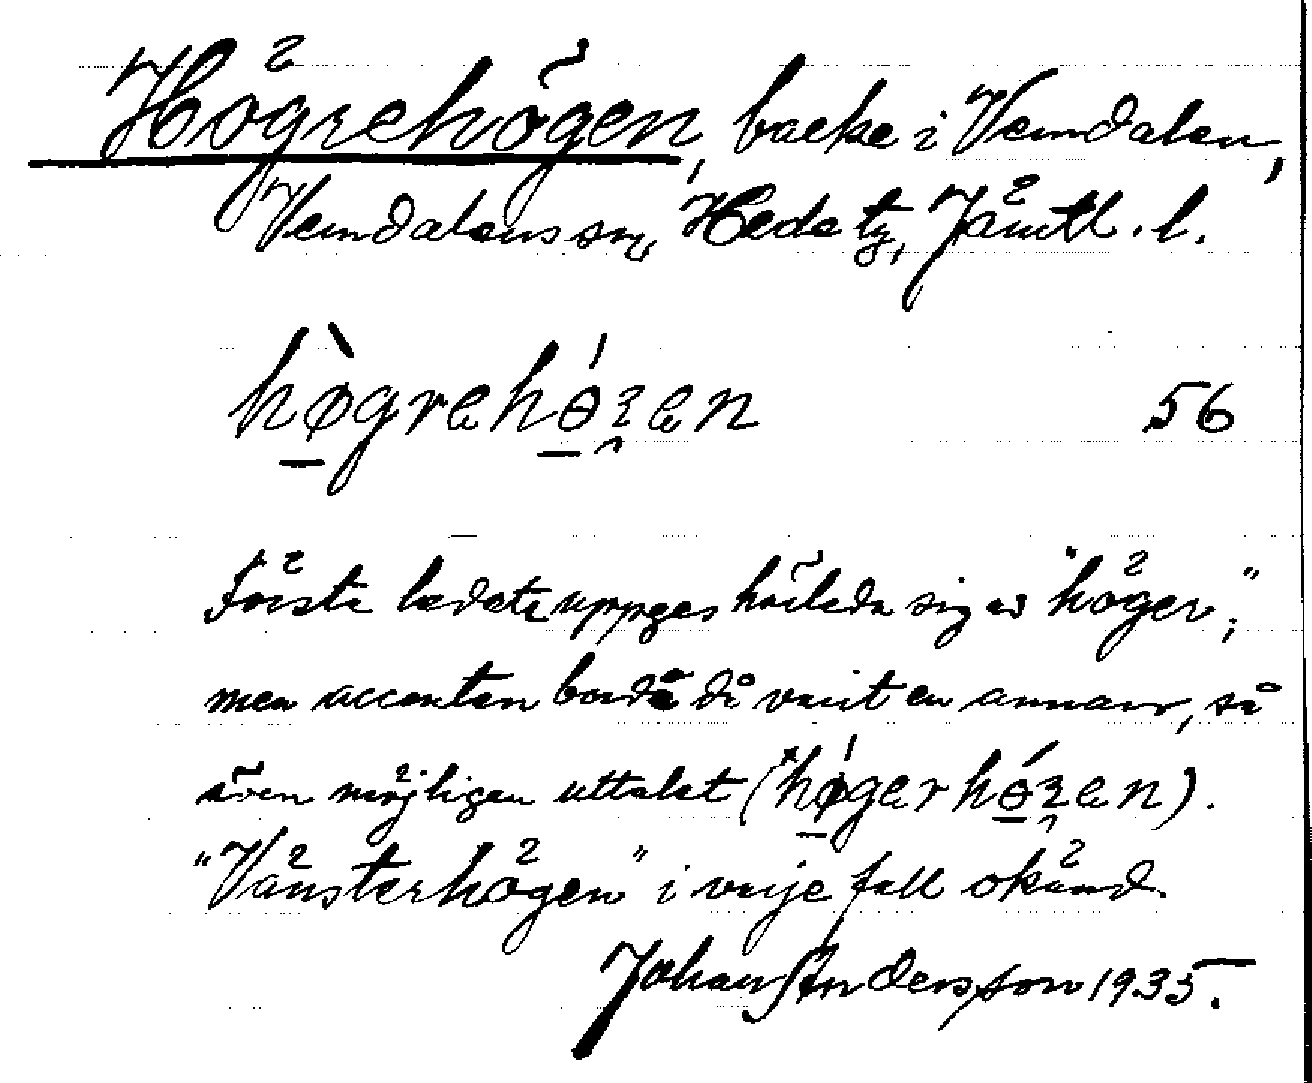 Högrehögen, backe i Vemdalen,
Vemdalens sn, Hede tg, Jämtl. l.
hø̀grehǿɜen 56
Första ledet uppges härleda sig av "höger";
men accenten borde då varit en annan, så
även möjligen uttalet (*hǿgerhǿɜen).
"Vänsterhögen" i varje fall okänd.
Johan Andersson 1935.